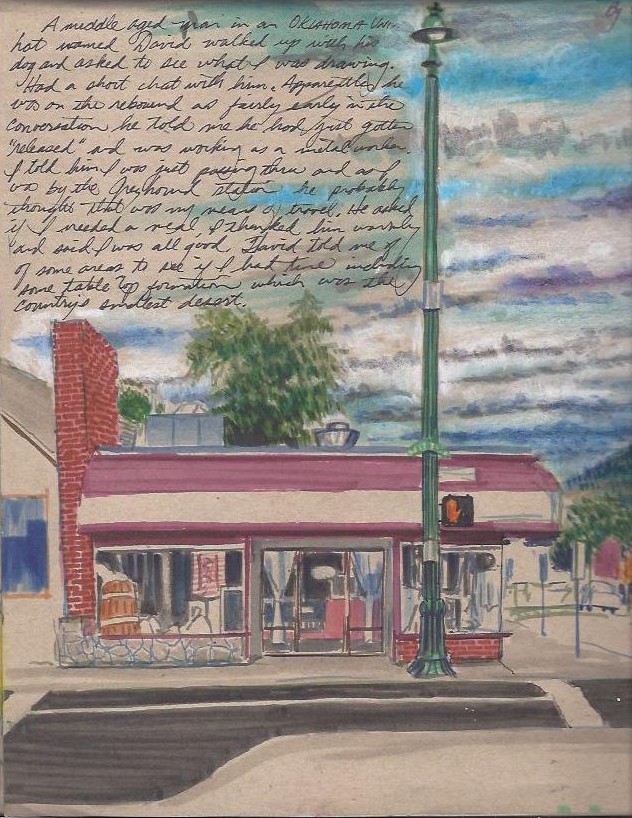 A middle aged man in an OKLAHOMA UNIV.
hat named David walked up with his
dog and asked to see what I was drawing.
Had a short chat with him. Apparently he
was on the rebound as fairly early in the
conversation he told me he had just gotten
"released" and was working as a metal worker.
I told him I was just passing thru and as I
was by the Greyhound station he probably
thought that was my means of travel. He asked
if I needed a meal, I thanked him warmly
and said I was all good. David told me of
of some areas to see if I had time including
some table top formation which was the
country's smallest desert.